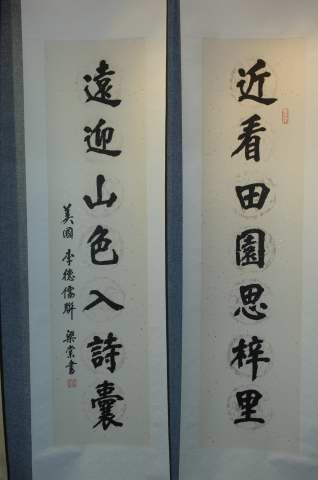 近看田園思梓里
遠迎山色入詩囊
美國 李德儒聯 梁棠書